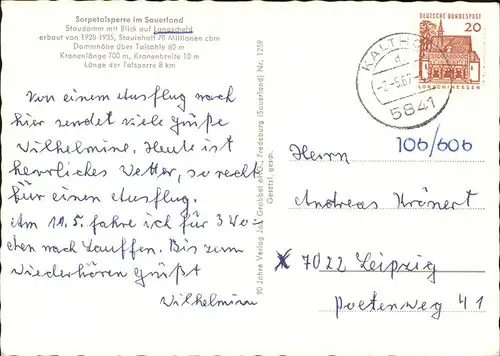 Sorpetalsperre im Sauerland
Staudamm mit Blick auf Langscheid
erbaut von 1928-1935, Stauinhalt 70 Millionen cbm
Dammhöhe über Talsohle 60 m
Kronenlänge 700 m, Kronenbreite 10 m
Länge der Talsperre 8 km
Von einem Ausflug nach
hier sendet viele Grüße
Wilhelmine. Heute ist
herrliches Wetter, so recht
für einen Ausflug.
Am 19.5. fahre ich für 3 Wo-
chen nach Lauffen. Bis zum
Wiederhören Grüßt
Wilhelmine
90 Jahre Verlag Jos. Grobbel oHG, Fredeburg (Sauerland) Nr. 1259
Gesetzl. gesch.
DEUTSCHE BUNDESPOST
20
LORSCH/HESSEN
KALTHO
d
-2.-5.67
5841
106/606
Herrn
Andreas Krönert
X 7022 Leipzig
Poetenweg 41